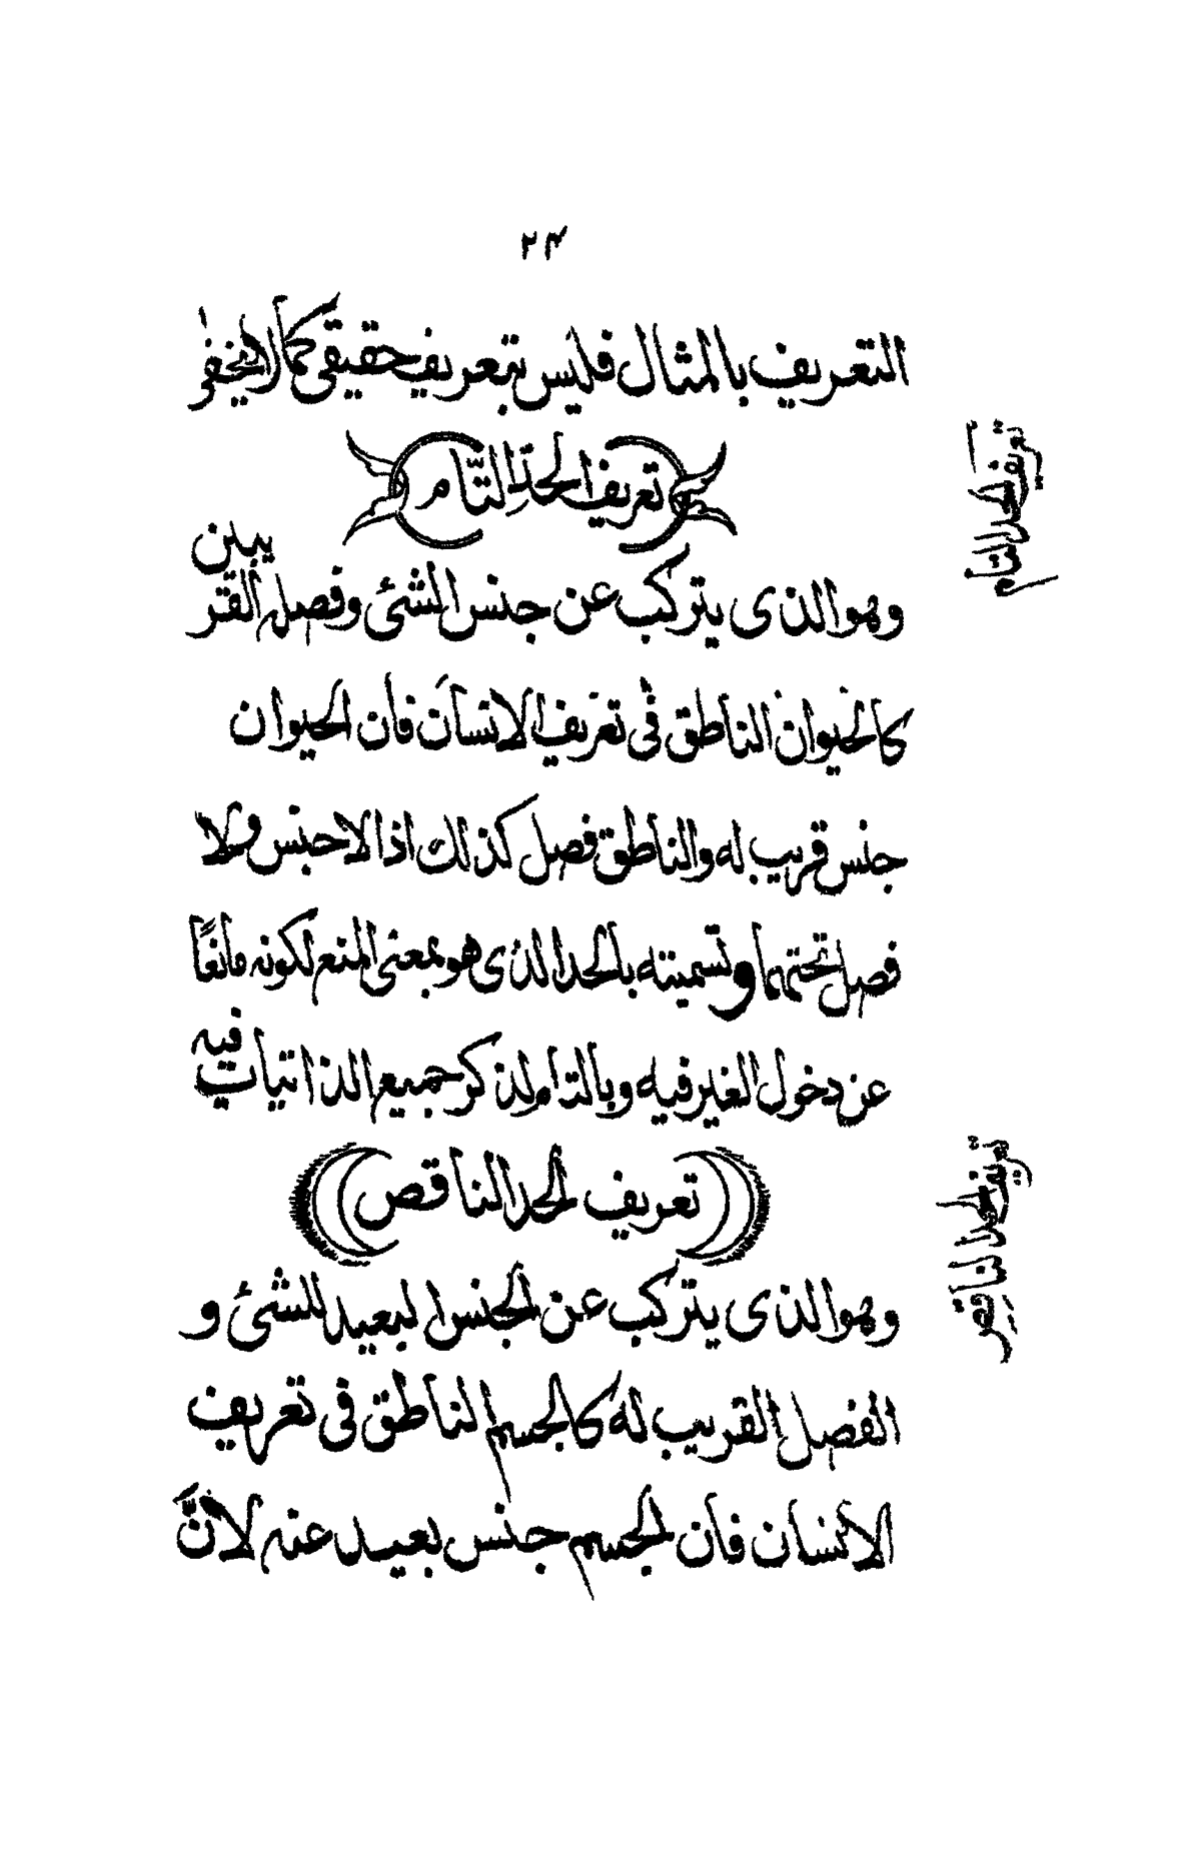 ٢٤
التعريف بالمثال فليس بتعريف حقيقى كما لا يخفى
تعريف الحد التّام
وهو الذى يتركب عن جنس الشئ وفصله القريبين
كالحيوان الناطق فى تعريف الانسان فان الحيوان
جنس قريب له والناطق فصل كذلك اذ الا جنس ولا
فصل تحتهما وتسميته بالحد الذى هو بمعنى المنع لكونه مانعًا
عن دخول الغير فيه وبالتام لذكر جميع الذاتيات فيه
تعريف الحد الناقص
وهو الذى يتركب عن الجنس البعيد للشئ و
الفصل القريب له كالجسم الناطق فى تعريف
الانسان فان الجسم جنس بعيد عنه لانَّ
تعريف الحد التام
تعريف الحد الناقص